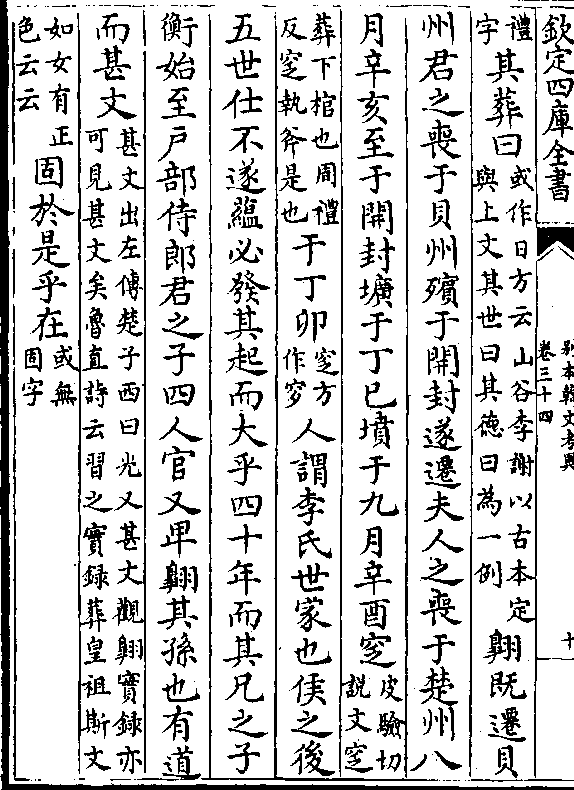 欽定四庫全書
別本韓文考異
卷三十四
十
禮
字
其葬曰
或作日方云山谷李謝以古本定
與上文其世曰其德曰為一例
翺既遷貝
州君之喪于貝州殯于開封遂遷夫人之喪于楚州八
月辛亥至于開封壙于丁巳墳于九月辛酉窆
皮驗切
說文窆
葬下棺也周禮
反窆執斧是也
于丁卯
窆方
作穸
人謂李氏世家也侯之後
五世仕不遂蘊必發其起而大乎四十年而其兄之子
衡始至戸部侍郎君之子四人官又卑翺其孫也有道
而甚文
甚文出左傳楚子西曰光又甚文觀翺實録亦
可見甚文矣魯直詩云習之實録葬皇祖斯文
如女有正
色云云
固於是乎在
或無
固字